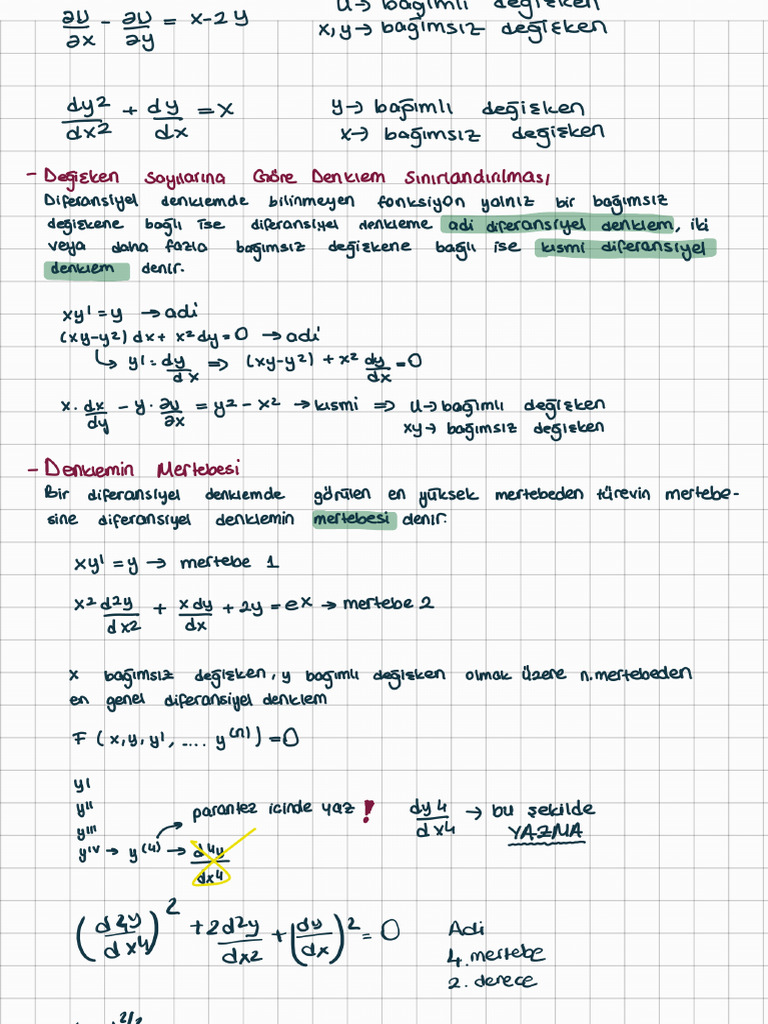 ∂u/∂x - ∂u/∂y = x-2y
u→ bağımlı değişken
x,y→ bağımsız değişken
dy2/dx2 + dy/dx = x
y→ bağımlı değişken
x→ bağımsız değişken
- Değişken Sayılarına Göre Denklem Sınırlandırılması
Diferansiyel denklemde bilinmeyen fonksiyon yalnız bir bağımsız
değişkene bağlı ise diferansiyel denkleme adi diferansiyel denklem, iki
veya daha fazla bağımsız değişkene bağlı ise kısmi diferansiyel
denklem denir.
xy' = y → adi
(xy-y²) dx + x² dy = 0 → adi
↳ y' = dy/dx ⇒ (xy-y²) + x² dy/dx = 0
x. dx/dy - y. ∂u/∂x = y² - x² → kısmi ⇒ u→ bağımlı değişken
xy→ bağımsız değişken
- Denklemin Mertebesi
Bir diferansiyel denklemde görülen en yüksek mertebeden türevin mertebe-
sine diferansiyel denklemin mertebesi denir.
xy' = y → mertebe 1
x² d²y/dx² + xdy/dx + 2y = eˣ → mertebe 2
x bağımsız değişken, y bağımlı değişken olmak üzere n.mertebeden
en genel diferansiyel denklem
F (x, y, y', .... y⁽ⁿ⁾) = 0
y'
y''
y'''
parantez icinde yaz !
dy4/dx4 → bu şekilde
YAZMA
yᴵⱽ → y⁽⁴⁾ → d⁴y/dx⁴
(d⁴y/dx⁴)² + 2d²y/dx² + (dy/dx)² = 0
Adi
4. mertebe
2. derece